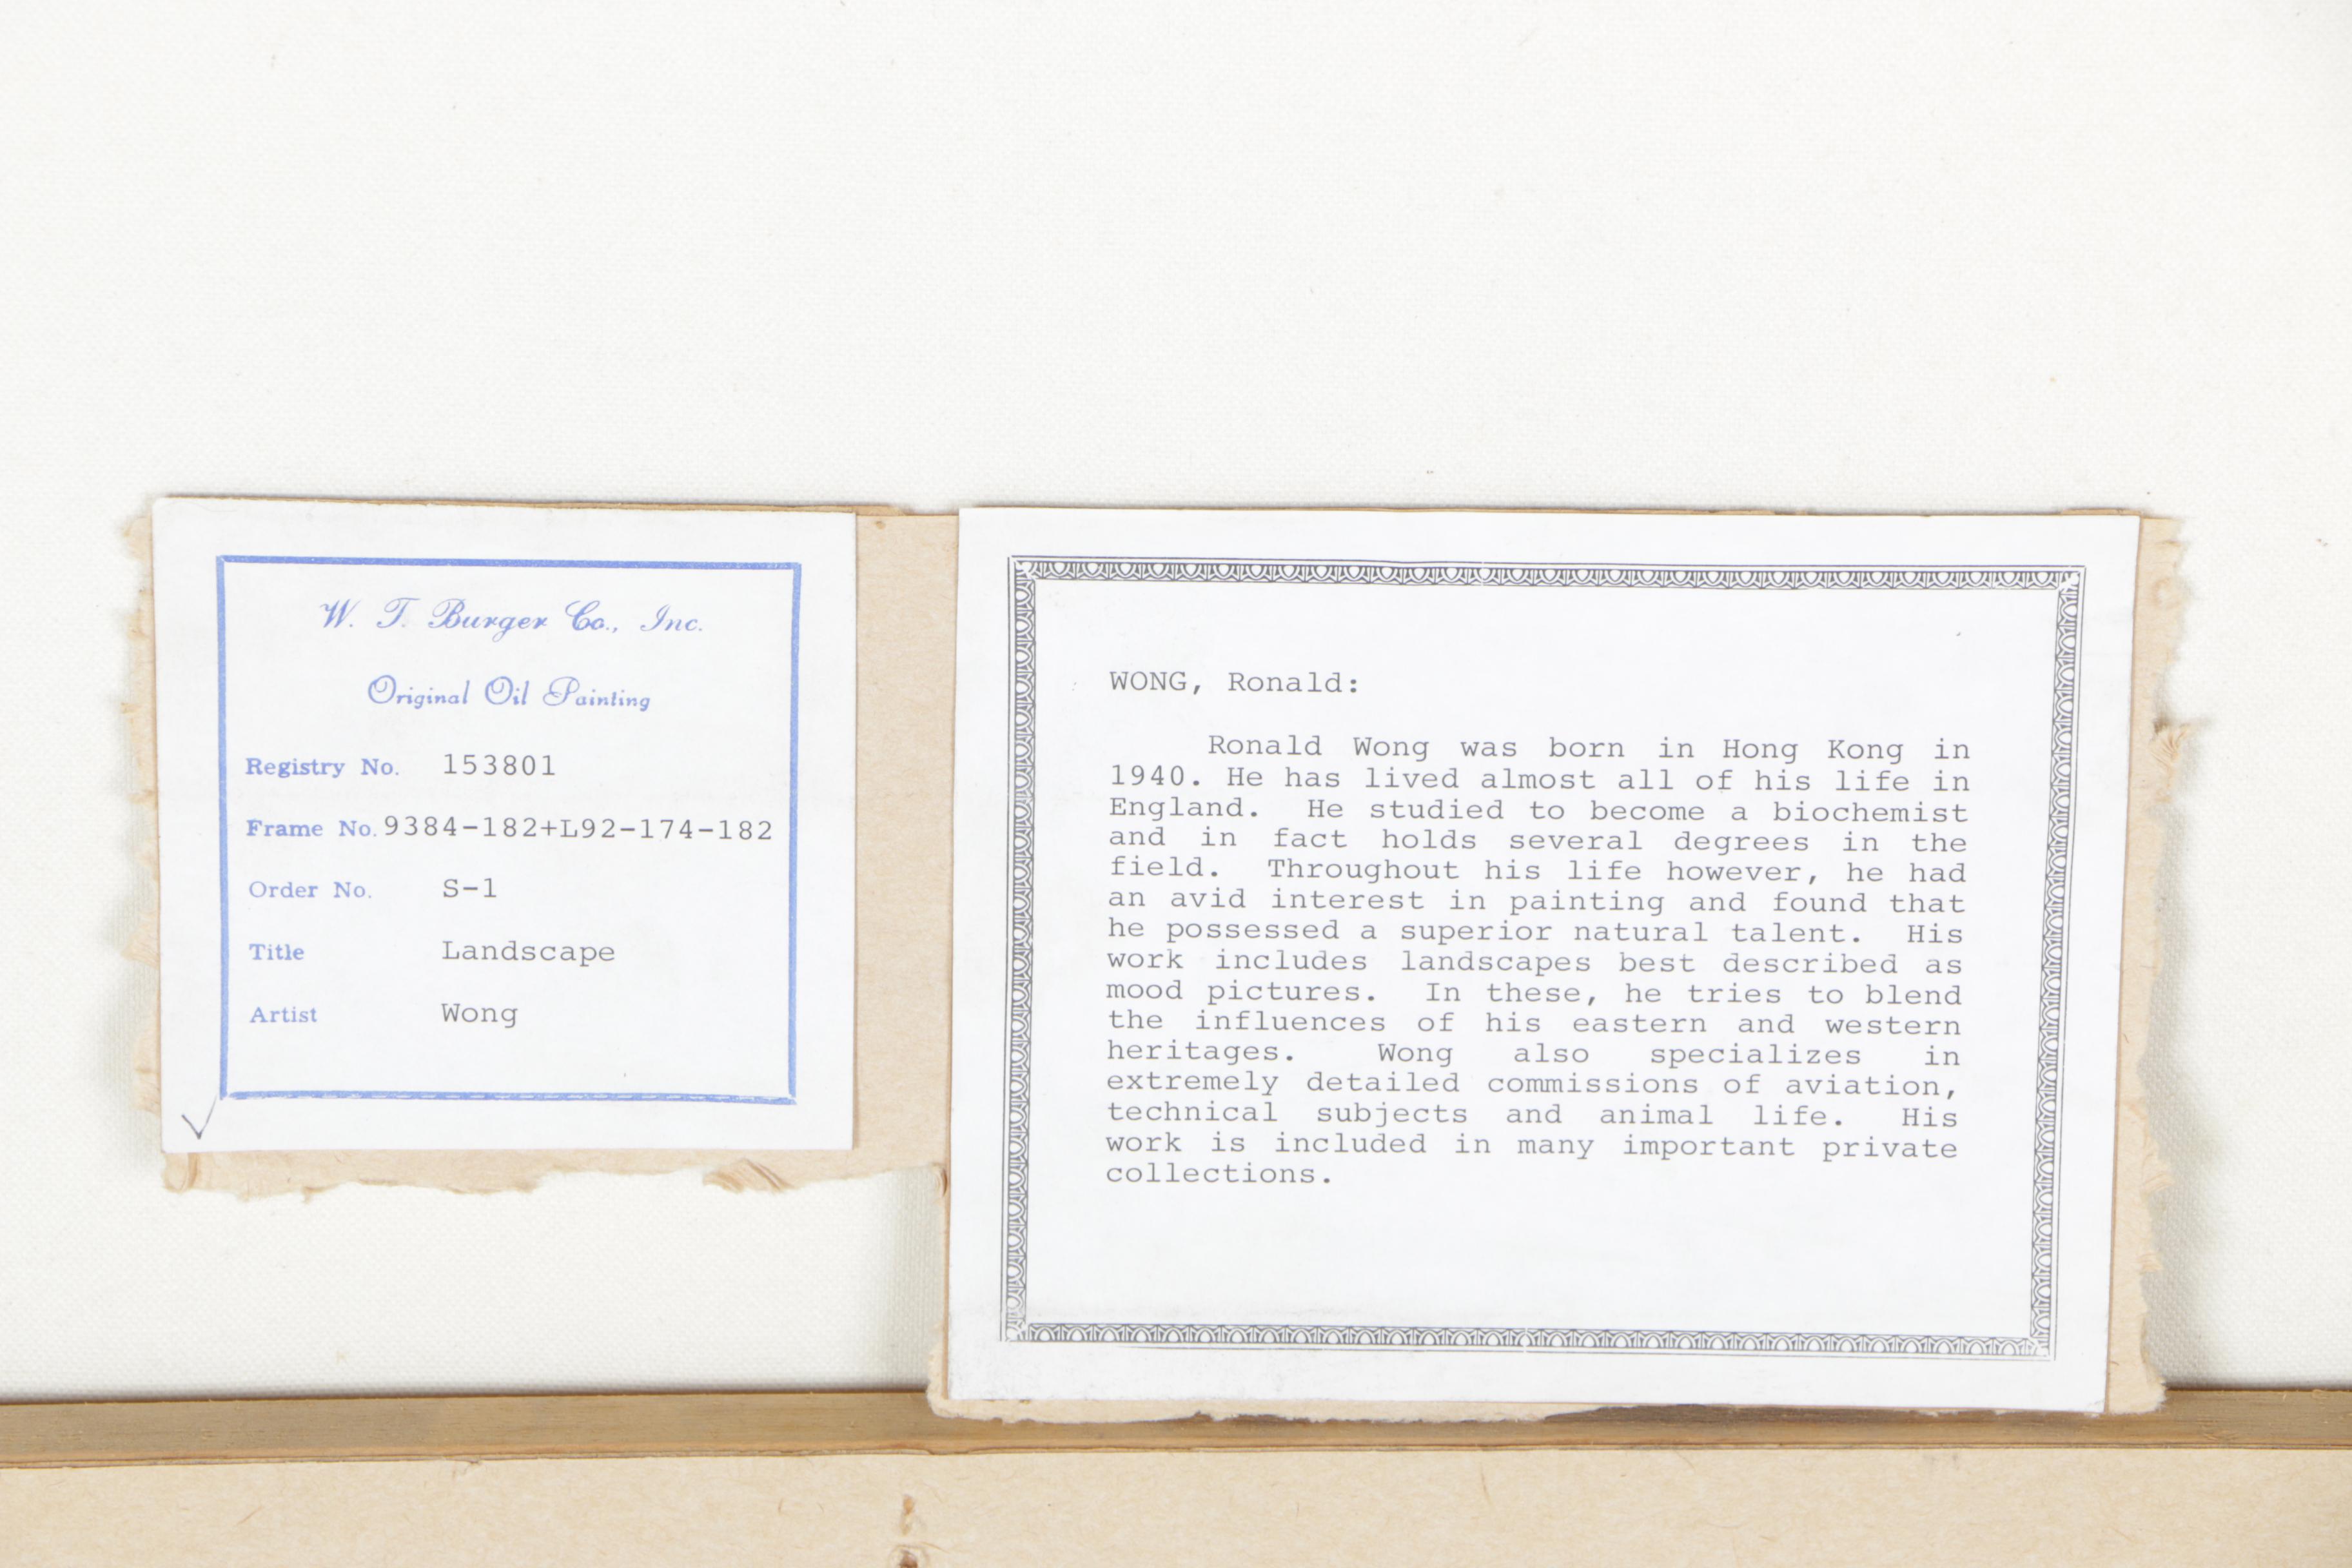 W. T. Burger Co., Inc.
Original Oil Painting
Registry No. 153801
Frame No. 9384-182+L92-174-182
Order No. S-1
Title Landscape
Artist Wong
WONG, Ronald:
Ronald Wong was born in Hong Kong in
1940. He has lived almost all of his life in
England. He studied to become a biochemist
and in fact holds several degrees in the
field. Throughout his life however, he had
an avid interest in painting and found that
he possessed a superior natural talent. His
work includes landscapes best described as
mood pictures. In these, he tries to blend
the influences of his eastern and western
heritages. Wong also specializes in
extremely detailed commissions of aviation,
technical subjects and animal life. His
work is included in many important private
collections.